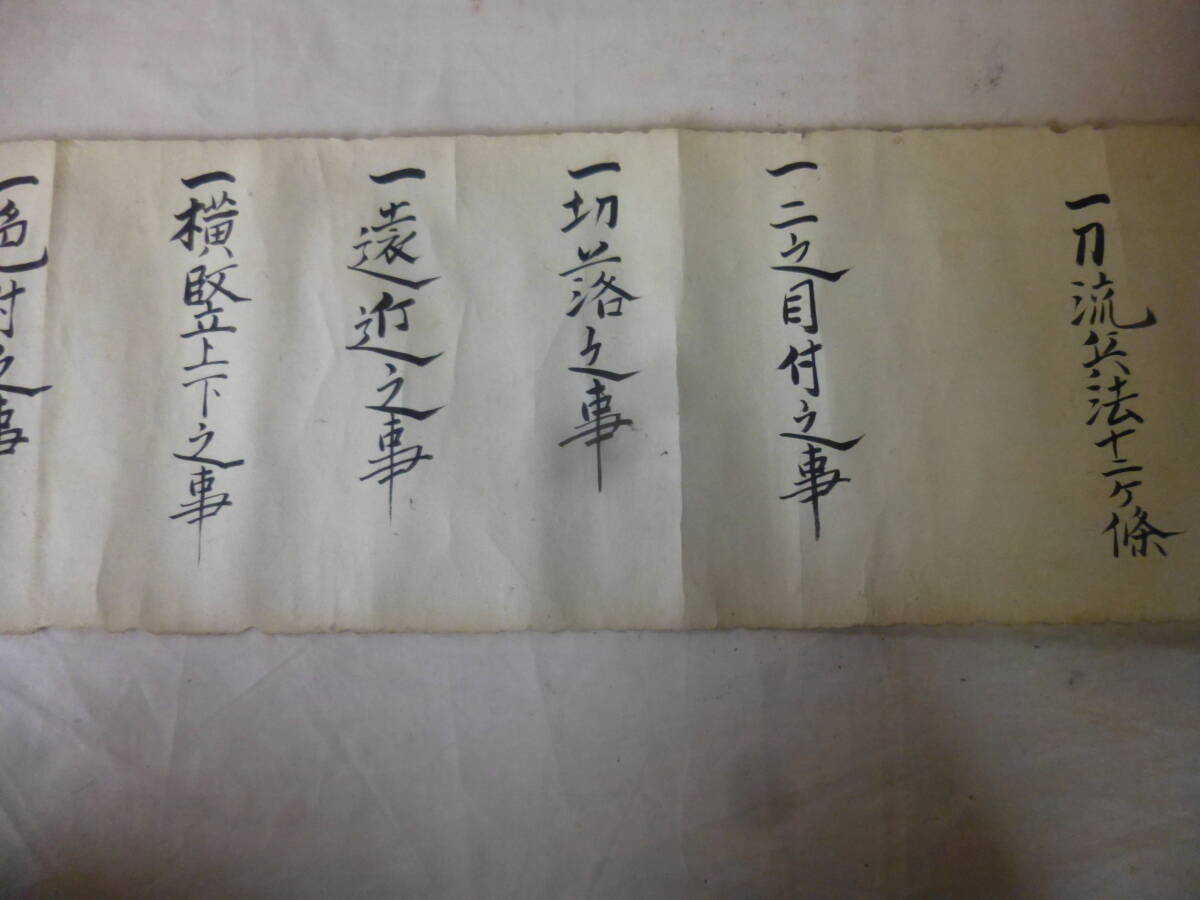 一刀流兵法十二ケ條
一二之目付之事
一切落之事
一遠近之事
一横竪上下之事
一色付之事